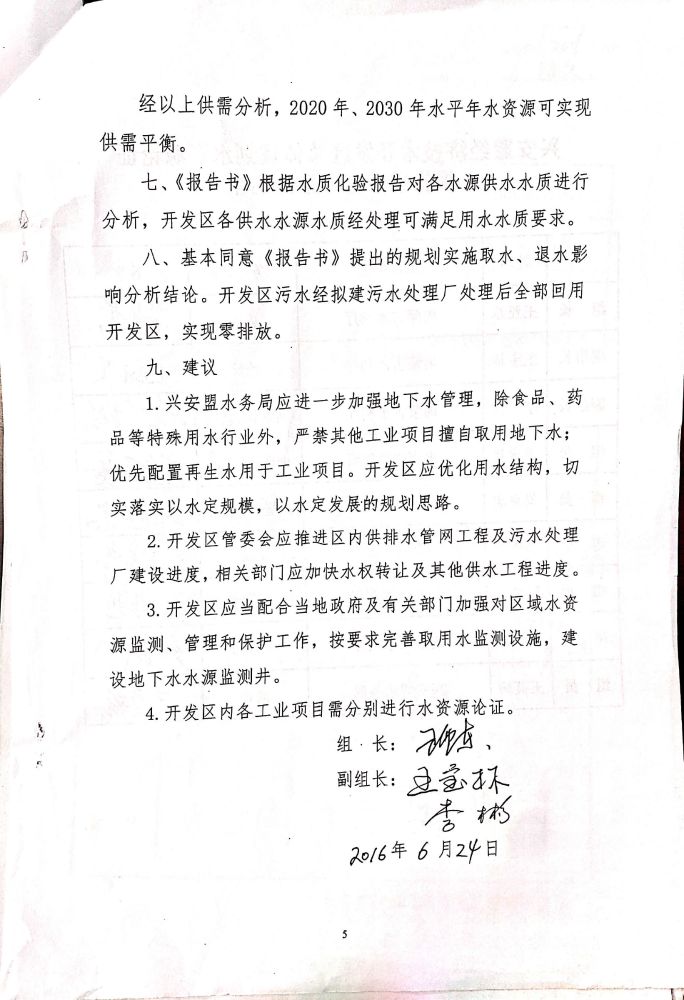 经以上供需分析，2020 年、2030 年水平年水资源可实现
供需平衡。
七、《报告书》根据水质化验报告对各水源供水水质进行
分析，开发区各供水水源水质经处理可满足用水水质要求。
八、基本同意《报告书》提出的规划实施取水、退水影
响分析结论。开发区污水经拟建污水处理厂处理后全部回用
开发区，实现零排放。
九、建议
1.兴安盟水务局应进一步加强地下水管理，除食品、药
品等特殊用水行业外，严禁其他工业项目擅自取用地下水；
优先配置再生水用于工业项目。开发区应优化用水结构，切
实落实以水定规模，以水定发展的规划思路。
2.开发区管委会应推进区内供排水管网工程及污水处理
厂建设进度，相关部门应加快水权转让及其他供水工程进度。
3.开发区应当配合当地政府及有关部门加强对区域水资
源监测、管理和保护工作，按要求完善取用水监测设施，建
设地下水水源监测井。
4.开发区内各工业项目需分别进行水资源论证。
组 长：
副组长：王宝林
李彬
2016年 6 月24日
5